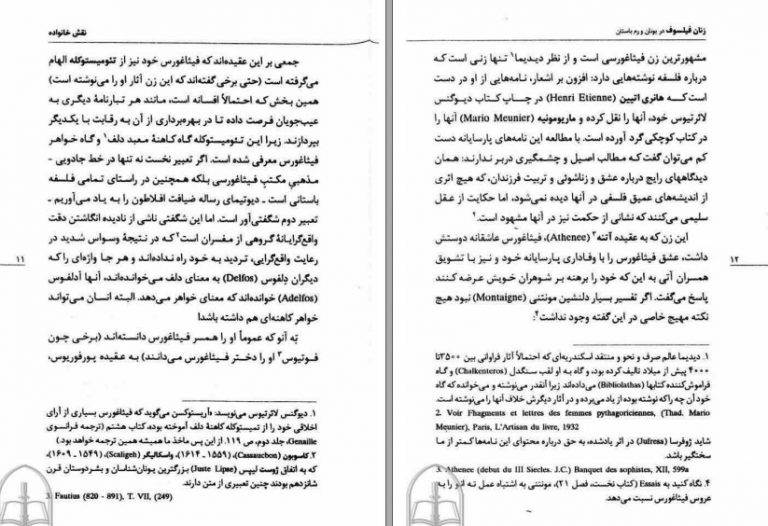 نقش خانواده
جمعی بر این عقیده‌اند که فیثاغورس خود نیز از تئومیستوکله الهام
می‌گرفته است (حتی برخی گفته‌اند که این زن آثار او را می‌نوشته است)
همین بخش که احتمالاً افسانه است، مانند هر تبارنامهٔ دیگری به
عیب‌جویان فرصت داده تا در بهره‌برداری از آن به رقابت با یکدیگر
بپردازند. زیرا این تئومیستوکله گاه کاهنهٔ معبد دلف۱ و گاه خواهر
فیثاغورس معرفی شده است. اگر تعبیر نخست نه تنها در خط جادویی -
مذهبی مکتب فیثاغورسی بلکه همچنین در راستای تمامی فلسفه
باستانی است - دیوتیمای رساله ضیافت افلاطون را به یاد می‌آوریم -
تعبیر دوم شگفتی‌آور است. اما این شگفتی ناشی از نادیده انگاشتن دقت
واقع‌گرایانهٔ گروهی از مفسران است۲ که در نتیجهٔ وسواس شدید در
رعایت واقع‌گرایی، تردید به خود راه نداده‌اند و هر جا واژه‌ای را که
دیگران دِلفوس (Delfos) به معنای دلف می‌خوانده‌اند، آنها اَدلفوس
(Adelfos) خوانده‌اند که معنای خواهر می‌دهد. البته انسان می‌تواند
خواهر کاهنه‌ای هم داشته باشد!
تِه آنو که عموماً او را همسر فیثاغورس دانسته‌اند (برخی چون
فوتیوس۳ او را دختر فیثاغورس می‌دانند) به عقیده پورفوریوس،
۱۱
۱. دیوگنس لائرتیوس می‌نویسد: «آریستوکسن می‌گوید که فیثاغورس بسیاری از آرای
اخلاقی خود را از تمیستوکله کاهنهٔ دلف آموخته بود، کتاب هشتم (ترجمه فرانسوی
Genaille، جلد دوم، ص ۱۱۹. از این پس ماخذ ما همیشه همین ترجمه خواهد بود.)
۲. کاسوبون (Cassaucbon)، (۱۵۵۹ - ۱۶۱۴)، واسکالیگر (Scaligeh)، (۱۵۴۹ - ۱۶۰۹)،
که به اتفاق ژوست لیپس (Juste Lipse) بزرگترین یونان‌شناسان و بشردوستان قرن
شانزدهم بودند چنین تعبیری از متن دارند.
3. Fautius (820 - 891), T. VII, (249)
زنان فیلسوف در یونان و رم باستان
مشهورترین زن فیثاغورسی است و از نظر دیدیما۱ تنها زنی است که
درباره فلسفه نوشته‌هایی دارد: افزون بر اشعار، نامه‌هایی از او در دست
است که هانری اتیین (Henri Etienne) در چاپ کتاب دیوگنس
لائرتیوس خود، آنها را نقل کرده و ماریومونیه (Mario Meunier) آنها را
در کتاب کوچکی گرد آورده است. با مطالعه این نامه‌های پارسایانه دست
کم می‌توان گفت که مطالب اصیل و چشمگیری دربر ندارند: همان
دیدگاههای رایج درباره عشق و زناشوئی و تربیت فرزندان، که هیچ اثری
از اندیشه‌های عمیق فلسفی در آنها دیده نمی‌شود، اما حکایت از عقل
سلیمی می‌کنند که نشانی از حکمت نیز در آنها مشهود است.۲
این زن که به عقیده آتنه۳ (Athenee)، فیثاغورس عاشقانه دوستش
داشت، عشق فیثاغورس را با وفاداری پارسایانه خود و نیز با تشویق
همسران آتی به این که خود را برهنه بر شوهران خویش عرضه کنند
پاسخ می‌گفت. اگر تفسیر بسیار دلنشین مونتنی (Montaigne) نبود هیچ
نکته مهیج خاصی در این گفته وجود نداشت۴.
۱۲
۱. دیدیما عالم صرف و نحو و منتقد اسکندریه‌ای که احتمالاً آثار فراوانی بین ۳۵۰۰ تا
۴۰۰۰ پیش از میلاد تالیف کرده بود، و گاه به او لقب سنگدل (Chalkenteros) و گاه
فراموش‌کننده کتابها (Bibliolathas) می‌داده‌اند زیرا آنقدر می‌نوشته و می‌خوانده که گاه
خود آن چه را که نوشته بوده از یاد می‌برده و در آثار دیگرش خلاف آنها را می‌نوشته است.
2. Voir Fhaguments et lettres des femmes pythagoriciennes, (Thad. Mario
Meunier), Paris, L'Artisan du livre, 1932
شاید ژوفرسا (Jufresa) در اثر یادشده، به حق درباره محتوای این نامه‌ها کمتر از ما
سختگیر باشد.
3. Athenee (debut du III Siecles. J.C.) Banquet des sophistes, XII, 599a
۴. نگاه کنید به Essais (کتاب نخست، فصل ۲۱)، مونتنی به اشتباه عمل ته آنو را به
عروس فیثاغورس نسبت می‌دهد.